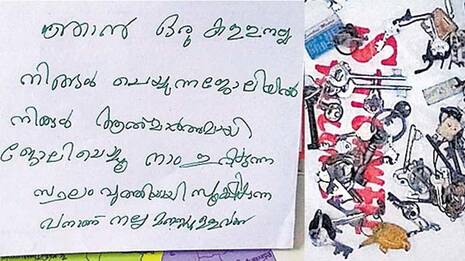 ഞാൻ ഒരു കള്ളനല്ല
നിങ്ങൾ ചെയ്യുന്ന ജോലിയിൽ
നിങ്ങൾ ആത്മാർത്ഥമായി
ജോലിചെയ്യൂ നാം ഇരിക്കുന്ന
സ്ഥലം വൃത്തിയായി സൂക്ഷിക്കുന്ന
വനാണ് നല്ല മനസ്സുള്ളവൻ